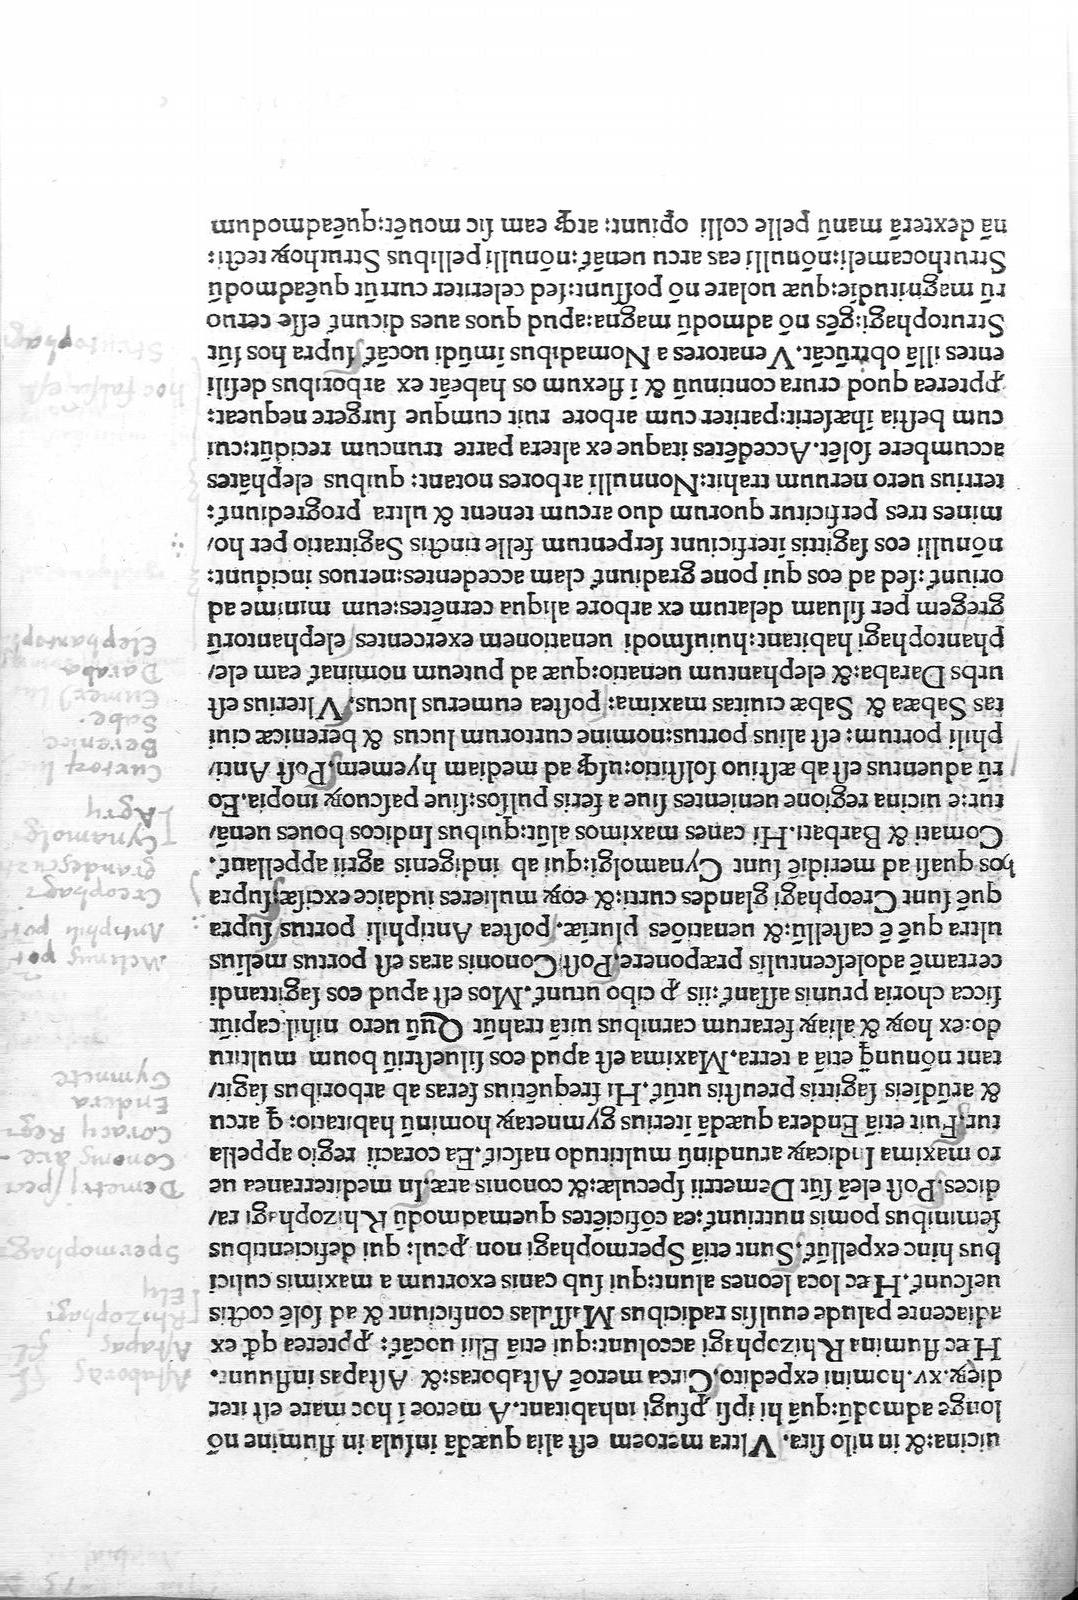 uicina: & in nilo sita. Vltra meroem est alia quædā insula in flumine nō
longe admodū: quā hi ipsi ꝓfugi inhabitant. A meroe ī hoc mare est iter
dieꝝ. xv. homini expedito. Circa meroē Astaboras: & Astapas influunt.
Hæc flumina Rhizophagi accolunt: qui etiā Elii uocāt᷑: ꝓpterea qđ ex
adiacente palude euulsis radicibus Massulas conficiunt & ad solē coctis
uescunt᷑. Hæc loca leones alunt: qui sub canis exortum a maximis culici
bus hinc expellūt᷑. Sunt etiā Spermophagi non ꝓcul: qui deficientibus
seminibus pomis nutriunt᷑: ea cōficiētes quemadmodū Rhizophagi ra/
dices. Post eleā sūt Demetrii speculæ: & cononis aræ. In mediterranea ue
ro maxima Indicaꝝ arundinū multitudo nascit᷑. Ea coracii regio appella
tur. Fuit etiā Endera quædā īterius gymnetaꝝ hominū habitatio: ꝗ arcu
& arūdīeis sagittis preustis utūt᷑. Hi frequētius feras ab arboribus sagit/
tant nōnunꝗ̄ etiā a terra. Maxima est apud eos siluestriū boum multitu
do: ex hoꝝ & aliaꝝ ferarum carnibus uitā trahūt Quū uero nihil capiūt
sicca choria prunis assant᷑: iis ꝓ cibo utunt᷑. Mos est apud eos sagittandi
certamē adolescentulis præponere. Post Cononis aras est portus melius
ultra quē ē castellū: & uenatiōes pluriæ. postea Antiphili portus supra
quē sunt Creophagi glandes curti: & eoꝝ mulieres iudaice excisæ: supra
hos quasi ad meridiē sunt Cynamolgi: qui ab indigenis agrii appellant᷑.
Comati & Barbati. Hi canes maximos alūt: quibus Indicos boues uenā/
tur: e uicina regione uenientes siue a feris pulsos: siue pascuoꝝ inopia. Eo
rū aduentus est ab æstiuo solstitio: usꝗ ad mediam hyemem. Post Anti/
phili portum: est alius portus: nomine curtorum lucus & berenicæ ciui
tas Sabæa & Sabæ ciuitas maxima: postea eumerus lucus. Vlterius est
urbs Daraba: & elephantum uenatio: quæ ad puteum nominat᷑ eam ele/
phantophagi habitant: huiusmodi uenationem exercentes. elephantorū
gregem per siluam delatum ex arbore aliqua cernētes: eum minime ad
oriunt᷑: sed ad eos qui pone gradiunt᷑ clam accedentes: neruos incidunt:
nōnulli eos sagittis īterficiunt serpentum felle tinctis Sagittatio per ho/
mines tres perficitur quorum duo arcum tenent & ultra progrediunt᷑:
tertius uero neruum trahit: Nonnulli arbores notant: quibus elephātes
accumbere solēt. Accedētes itaque ex altera parte truncum recidūt: cui
cum bestia ihæserit: pariter cum arbore ruit cumque surgere nequeat:
ꝓpterea quod crura continuū & ī flexum os habeāt ex arboribus desili
entes illā obtrūcāt. Venatores a Nomadibus īmūdi uocāt᷑. supra hos sūt
Strutophagi: gēs nō admodū magna: apud quos aues dicunt᷑ esse ceruo
rū magnitudīe: quæ uolare nō possunt: sed celeriter currūt quēadmodū
Struthocameli: nōnulli eas arcu uenāt᷑: nōnulli pellibus Struthoꝝ tecti:
nā dextera manū pelle colli opiunt: atꝗ eam sic mouēt: quēadmodum
Astaboras fl
Astapas fl
Rhizophagi
Ely
Spermophagi
Demetrj spec
Conony are
Coracy Reg
Endera
Gymnete
Meliny port
Antiphili port
Creophagi
Cynamolgi
Agry
Curtorum luc
Berenice
Sabe
Eumerj luc
Daraba
Elephantoph
hoc falsu est
Strutophagi